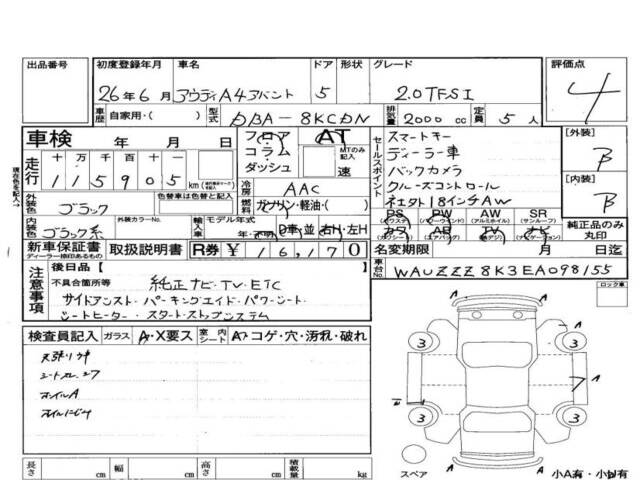 出品番号 初度登録年月 車名 ドア 形状 グレード 評価点
26年6月 アウディA4アバント 5 2.0TFSI 4
車歴 自家用・( ) 型式 DBA-8KCDN 排気量 2000 cc 定員 5 人
車検 年 月 日
フロア AT
コラム MTのみ記入
ダッシュ 速
走行 十 万 千 百 十
115905 km
冷房 AAC
外装色 ブラック 色替車は色替え前の色
燃料 ガソリン・軽油・( )
内装色 ブラック系 外装カラーNo. 輸入車記入 モデル年式
D車・並 右H・左H
新車保証書 ディーラー捺印あるもの 取扱説明書 R券 ¥ 16,170
セールスポイント
スマートキー
ディーラー車
バックカメラ
クルーズコントロール
社外18インチAW
PS PW AW SR
(パワステ) (パワーウインド) (アルミホイル) (サンルーフ)
カワ AB TV ナビ
(カワシート) (エアバッグ) (テレビ) (ナビゲーション)
[外装]
B
[内装]
B
純正品のみ丸印
名変期限 月 日迄
車台No. WAUZZZ8K3EA098155
現在色を記入→
注意事項
後日品【 】
不具合箇所等 純正ナビ・TV・ETC
サイドアシスト・パーキングエイド・パワーシート
シートヒーター・スタートストップシステム
ロック車
検査員記入 ガラス A・X要ス 室内シート A・コゲ・穴・汚れ・破れ
天張りキ
ホイルA
3 3
A A
7
3 3
スペア
A A
小A有・小凹有
長さ cm 幅 cm 高さ cm 積載量 kg